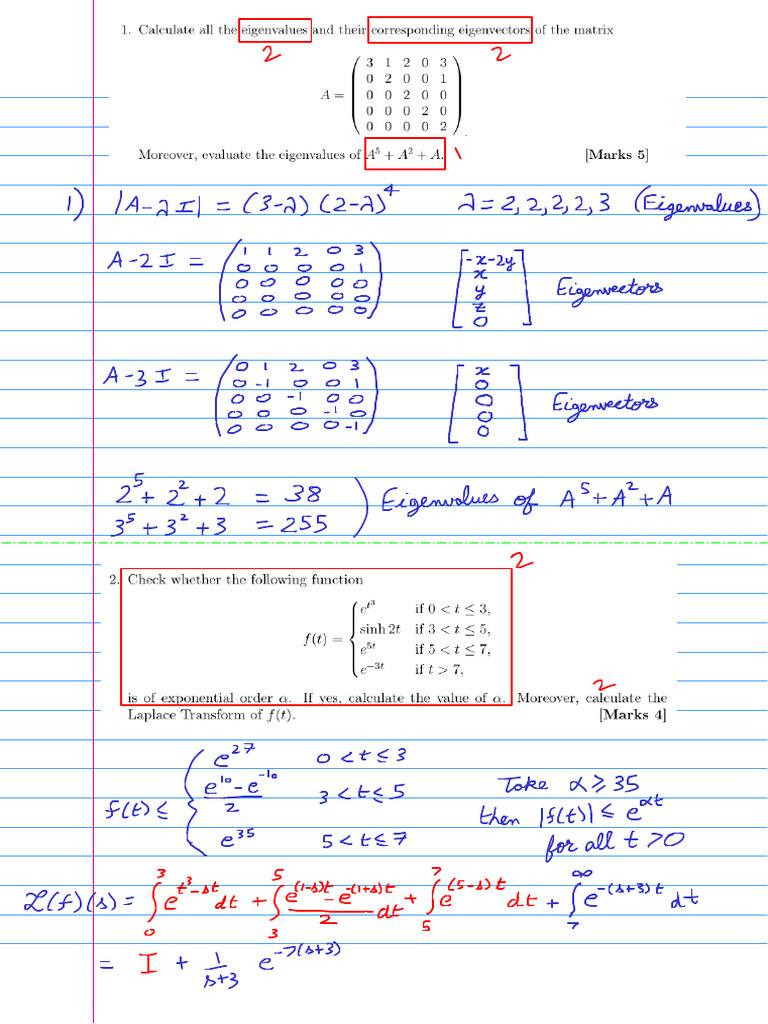 1. Calculate all the eigenvalues and their corresponding eigenvectors of the matrix
2 2
A = ( 3 1 2 0 3
0 2 0 0 1
0 0 2 0 0
0 0 0 2 0
0 0 0 0 2 ).
Moreover, evaluate the eigenvalues of A⁵ + A² + A. 1 [Marks 5]
1) |A-λI| = (3-λ) (2-λ)⁴ λ = 2, 2, 2, 2, 3 (Eigenvalues)
A-2I = ( 1 1 2 0 3
0 0 0 0 1
0 0 0 0 0
0 0 0 0 0
0 0 0 0 0 )
[ -x-2y
x
y
z
0 ] Eigenvectors
A-3I = ( 0 1 2 0 3
0 -1 0 0 1
0 0 -1 0 0
0 0 0 -1 0
0 0 0 0 -1 )
[ x
0
0
0
0 ] Eigenvectors
2⁵ + 2² + 2 = 38 ) Eigenvalues of A⁵+A²+A
3⁵ + 3² + 3 = 255
2
2. Check whether the following function
f(t) = { e^{t³} if 0 < t ≤ 3,
sinh 2t if 3 < t ≤ 5,
e^{5t} if 5 < t ≤ 7,
e^{−3t} if t > 7,
2
is of exponential order α. If yes, calculate the value of α. Moreover, calculate the
Laplace Transform of f(t). [Marks 4]
f(t) ≤ { e^{27} 0 < t ≤ 3
(e^{10} - e^{-10})/2 3 < t ≤ 5
e^{35} 5 < t ≤ 7
Take α ≥ 35
then |f(t)| ≤ e^{αt}
for all t > 0
L(f)(s) = ∫₀³ e^{t³-st} dt + ∫₃⁵ (e^{(1-s)t} - e^{-(1+s)t})/2 dt + ∫₅⁷ e^{(5-s)t} dt + ∫₇^∞ e^{-(s+3)t} dt
= I + 1/(s+3) e^{-7(s+3)}